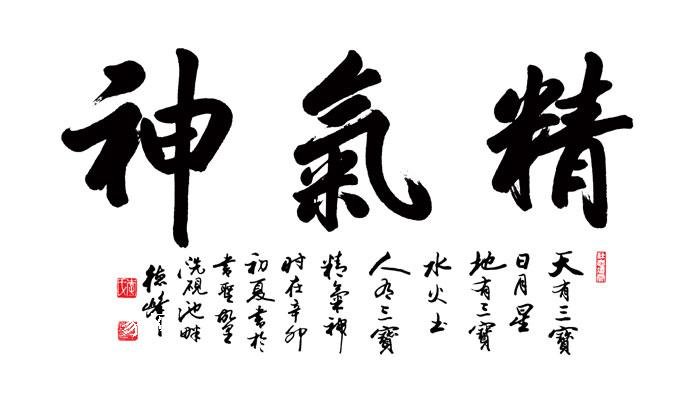 精氣神
天有三寶
日月星
地有三寶
水火土
人有三寶
精氣神
时在辛卯
初夏書於
書聖故里
洗硯池畔
德峰